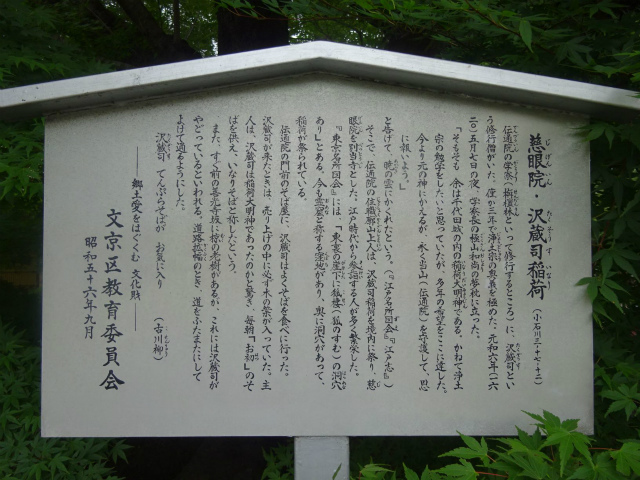 慈眼院・沢蔵司稲荷
（小石川三-十七-十二）
伝通院の学寮（栴檀林といって修行するところ）に、沢蔵司とい
う修行僧がいた。僅か三年で浄土宗の奥義を極めた。元和六年（一六
二〇）五月七日の夜、学寮長の極山和尚の夢枕に立った。
「そもそも　余は千代田城の内の稲荷大明神である。かねて浄土
宗の勉学をしたいと思っていたが、多年の希望をここに達した。
今より元の神にかえるが、永く当山（伝通院）を守護して、恩
に報いよう。」
と告げて、暁の雲にかくれたという。（『江戸名所図会』『江戸志』）
そこで、伝通院の住職廓山上人は、沢蔵司稲荷を境内に祭り、慈
眼院を別当寺とした。江戸時代から参詣する人が多く繁栄した。
『東京名所図会』には、「東裏の崖下に狐棲（狐のすむ）の洞穴
あり」とある。今も霊窟と称する窪地があり、奥に洞穴があって、
稲荷が祭られている。
伝通院の門前のそば屋に、沢蔵司はよくそばを食べに行った。
沢蔵司が来たときは、売り上げの中に必ず木の葉が入っていた。主
人は、沢蔵司は稲荷大明神であったのかと驚き、毎朝「お初」のそ
ばを供え、いなりそばと称したという。
また、すぐ前の善光寺坂に椋の老樹があるが、これには沢蔵司が
やどっているといわれる。道路拡幅のとき、道をふたまたにして
よけて通るようにした。
沢蔵司　てんぷらそばが　お気に入り　（古川柳）
――郷土愛をはぐくむ　文化財――
文京区教育委員会
昭和五十六年九月